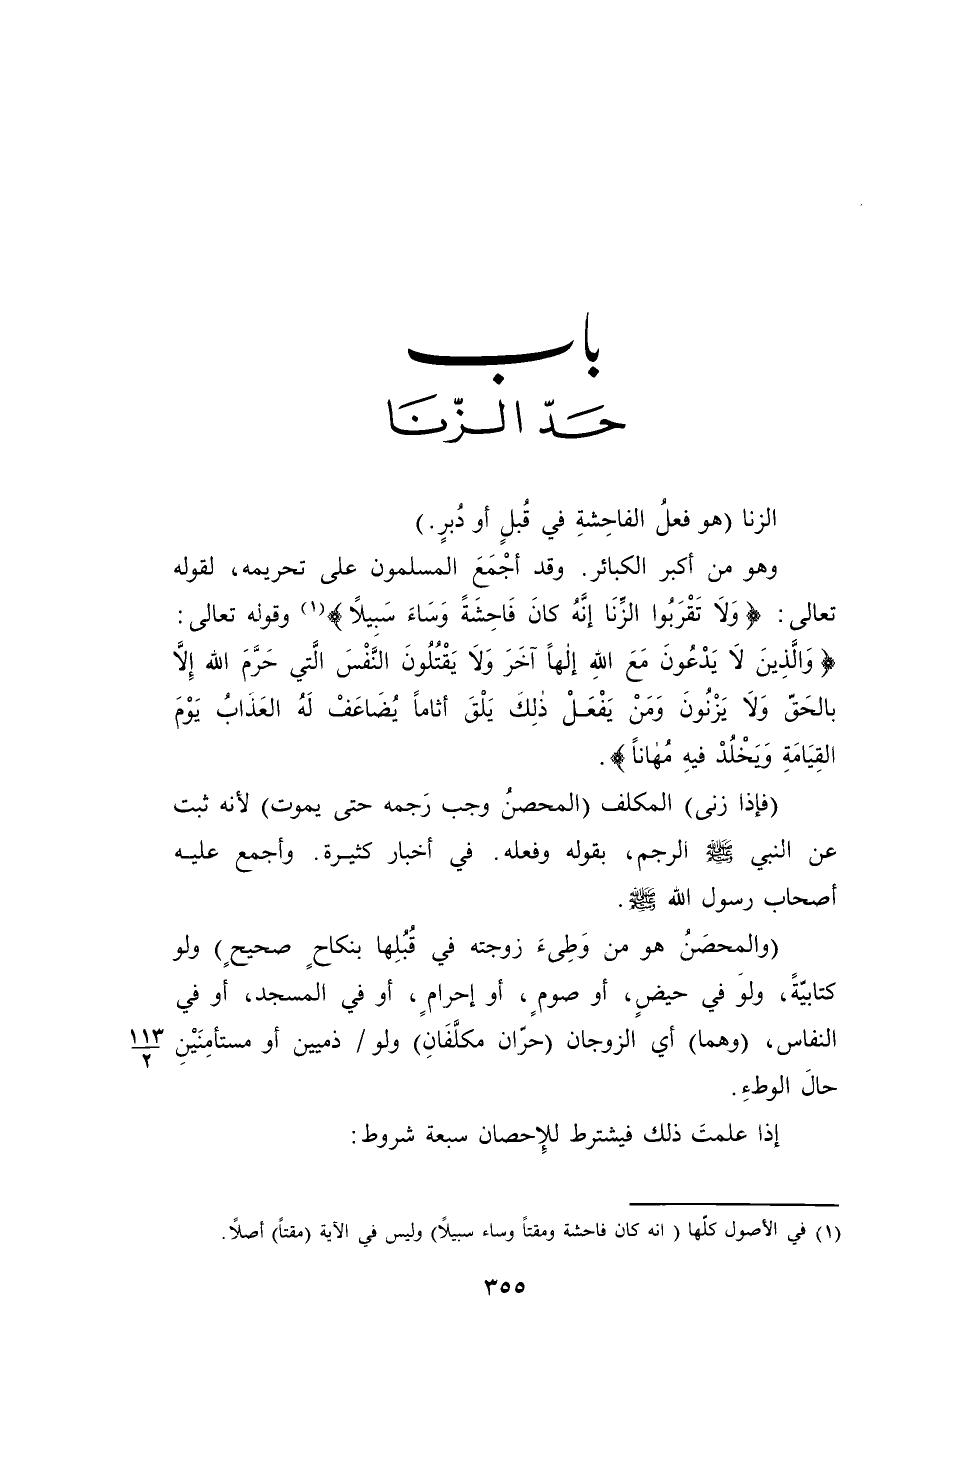 باب
حَدّ الـزّنَا
الزنا (هو فعلُ الفاحِشةِ في قُبلٍ أو دُبرٍ.)
وهو من أكبر الكبائر. وقد أجْمَعَ المسلمون على تحريمه، لقوله
تعالى: ﴿وَلَا تَقْرَبُوا الزِّنَا إنَّهُ كانَ فَاحِشَةً وَسَاءَ سَبِيلًا﴾(١) وقوله تعالى:
﴿وَالَّذِينَ لَا يَدْعُونَ مَعَ اللهِ إلٰهاً آخَرَ وَلَا يَقْتُلُونَ النَّفْسَ الَّتي حَرَّمَ الله إلَّا
بالحَقّ وَلَا يَزْنُونَ وَمَنْ يَفْعَـلْ ذٰلِكَ يَلْقَ أثاماً يُضَاعَفْ لَهُ العَذَابُ يَوْمَ
القِيَامَةِ وَيَخْلُدْ فيهِ مُهٰاناً﴾.
(فإذا زنى) المكلف (المحصنُ وجب رَجمه حتى يموت) لأنه ثبت
عن النبي ﷺ الرجم، بقوله وفعله. في أخبار كثيـرة. وأجمع عليـه
أصحاب رسول الله ﷺ.
(والمحصَنُ هو من وَطِىءَ زوجته في قُبُلِها بنكاحٍ صحيحٍ) ولو
كتابيّةً، ولوَ في حيضٍ، أو صومٍ، أو إحرامٍ، أو في المسجد، أو في
النفاس، (وهما) أي الزوجان (حرّان مكلَّفَانِ) ولو / ذميين أو مستأمِنَيْنِ ١١٣/٢
حالَ الوطءِ.
إذا علمتَ ذلك فيشترط للإِحصان سبعة شروط:
(١) في الأصول كلّها ( انه كان فاحشة ومقتاً وساء سبيلًا) وليس في الآية (مقتاً) أصلًا.
٣٥٥